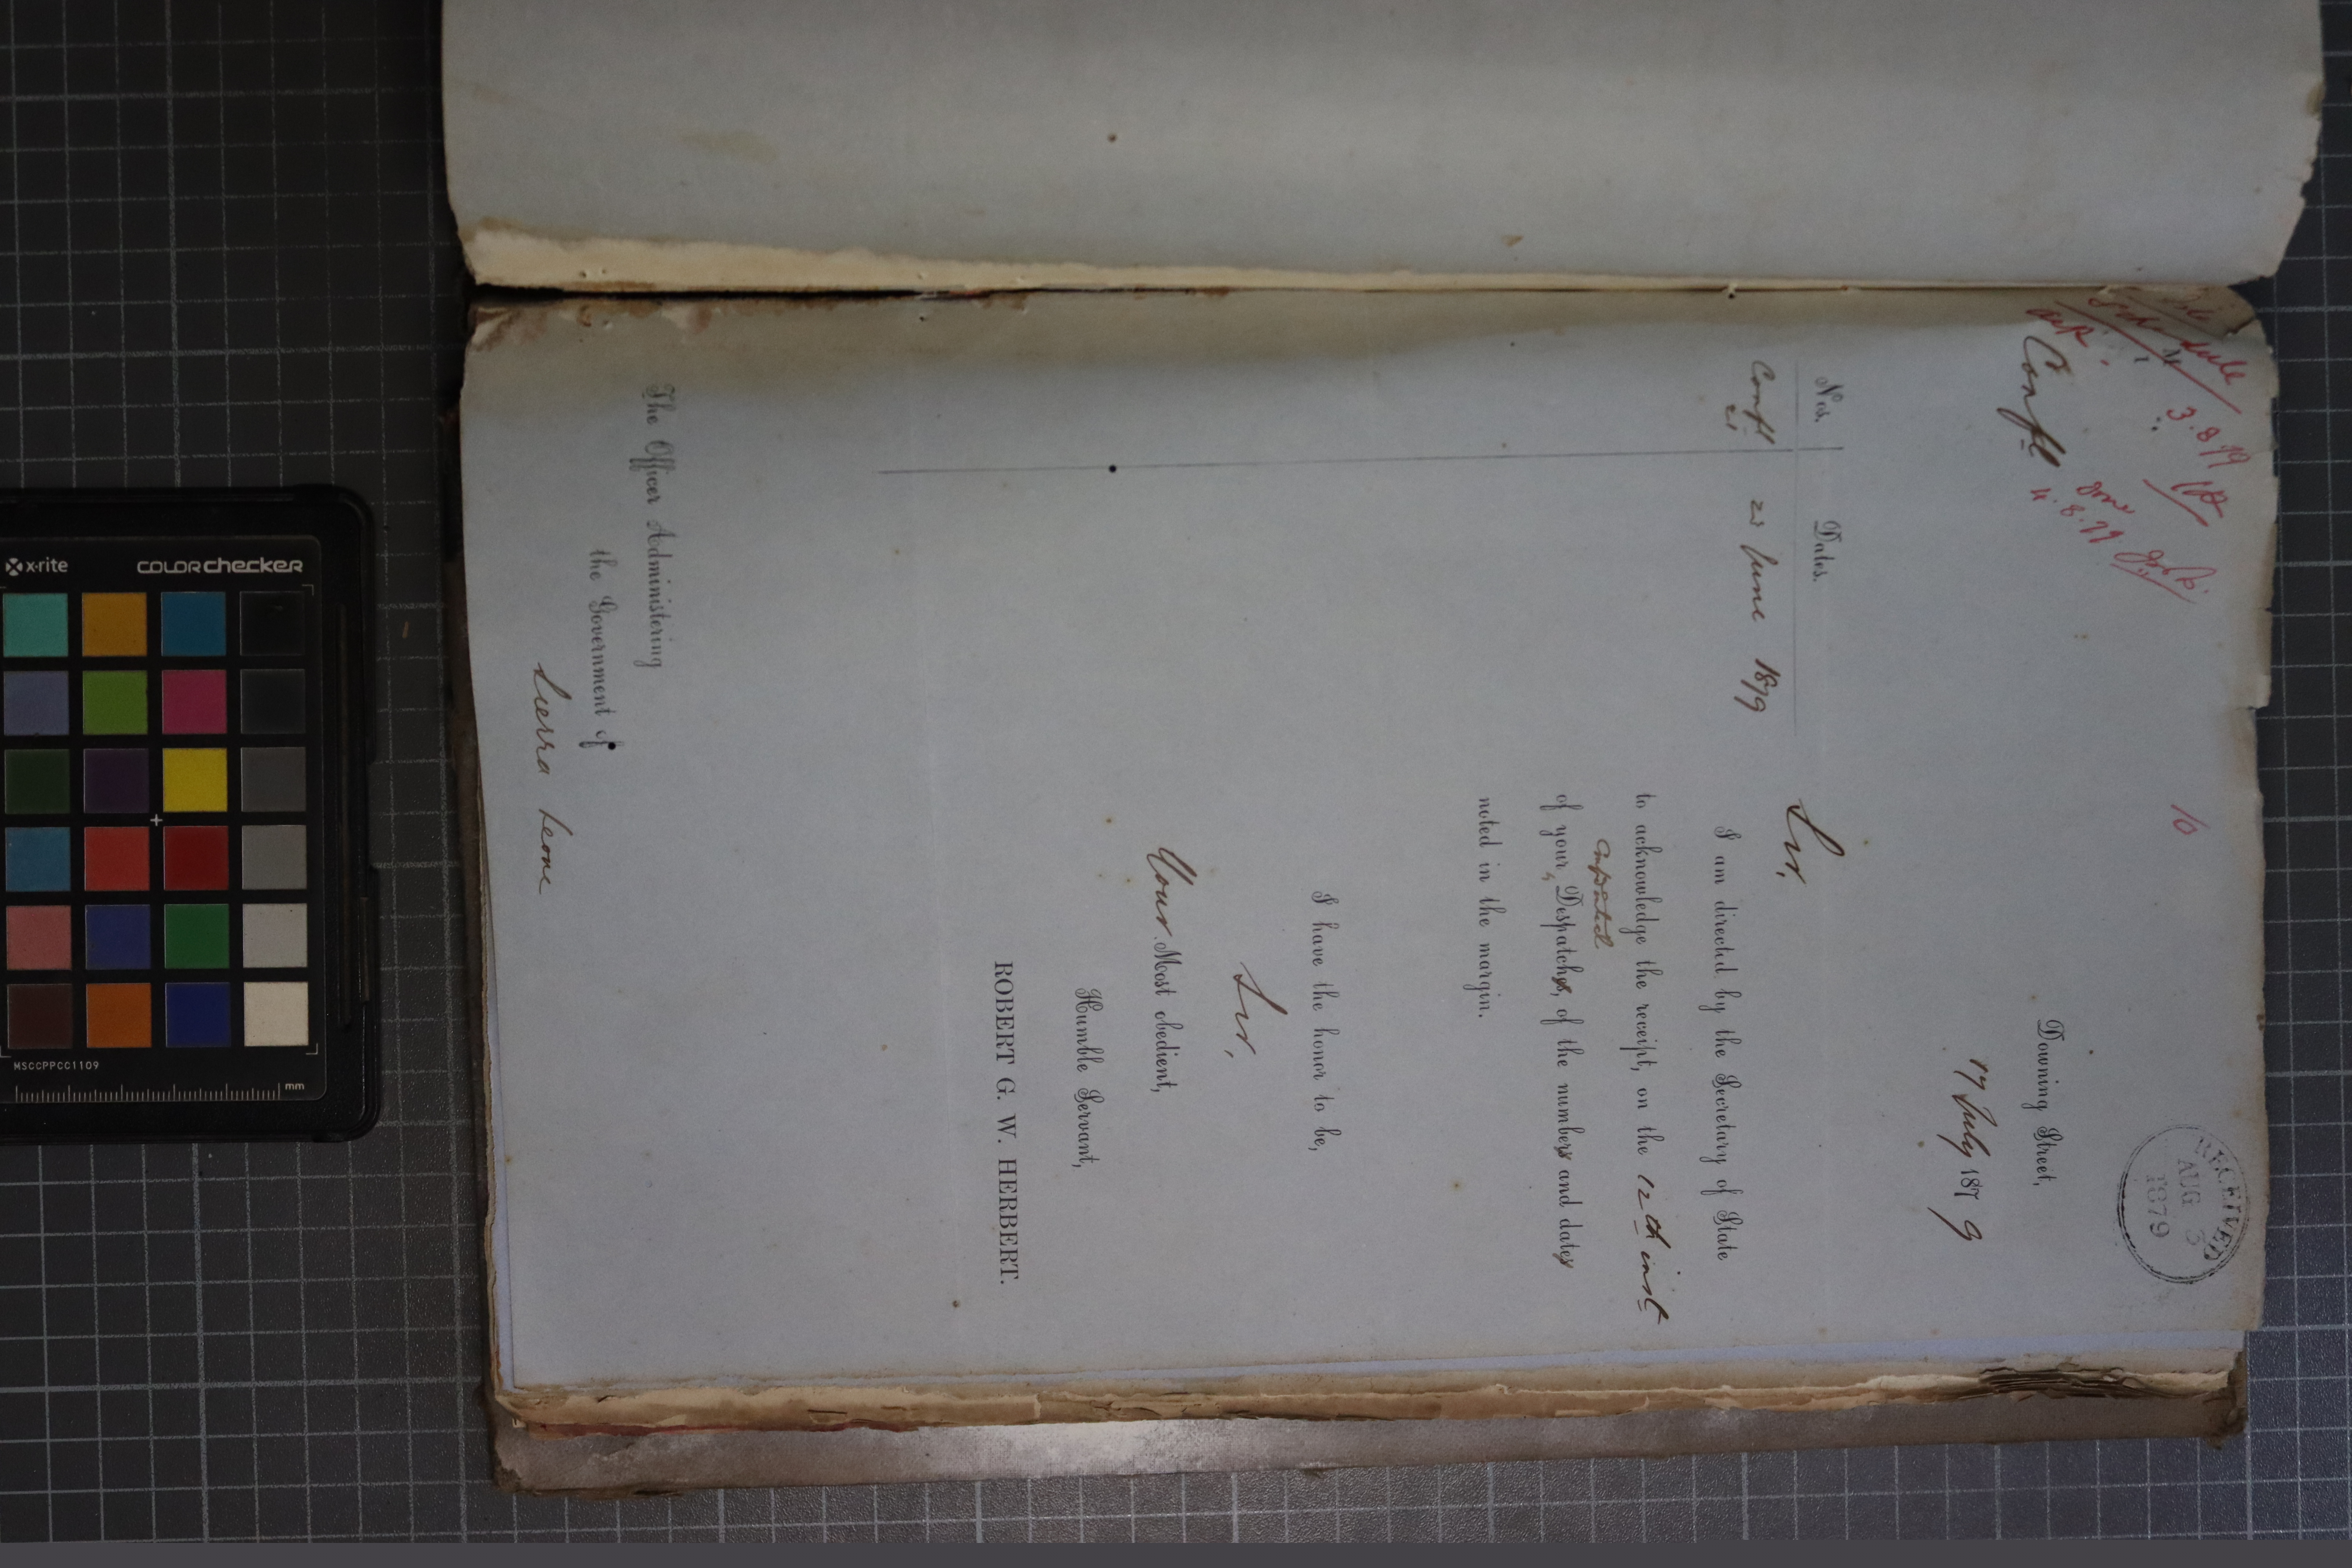 File
Schedule
3.8.79
Confl
4.8.79
10
RECEIVED
AUG 3
1879
Downing Street,
17 July 1879
Nos.
Dates.
Confl
21
23 June 1879
Sir,
I am directed by the Secretary of State
to acknowledge the receipt, on the 12th inst
of your Despatches, of the numbers and dates
noted in the margin.
I have the honor to be,
Sir,
Your Most obedient,
Humble Servant,
ROBERT G. W. HERBERT.
The Officer Administering
the Government of
Sierra Leone
x-rite
colorchecker
MSCCPPCC1109
mm